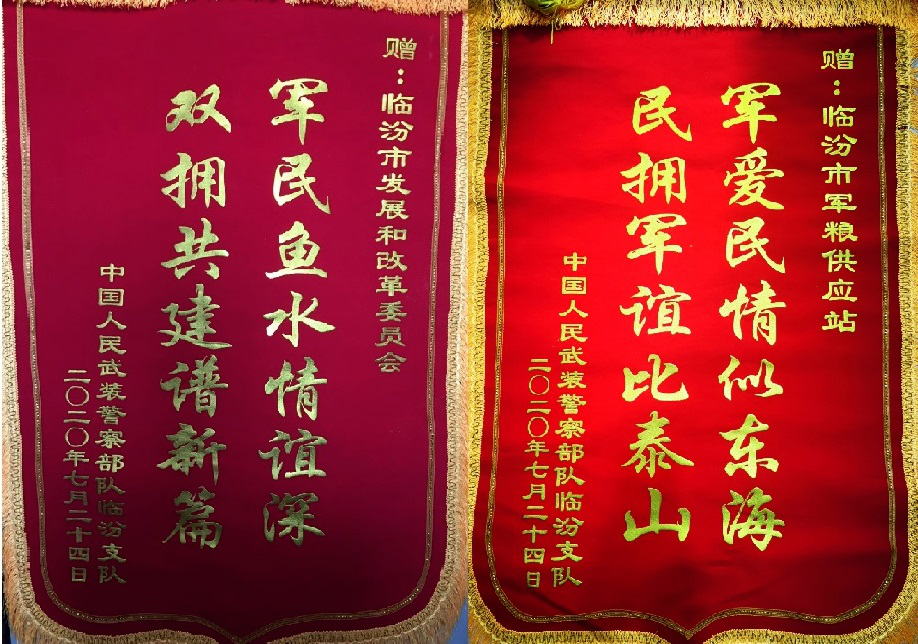 赠：临汾市发展和改革委员会
军民鱼水情谊深
双拥共建谱新篇
中国人民武装警察部队临汾支队
二〇二〇年七月二十四日
赠：临汾市军粮供应站
军爱民情似东海
民拥军谊比泰山
中国人民武装警察部队临汾支队
二〇二〇年七月二十四日